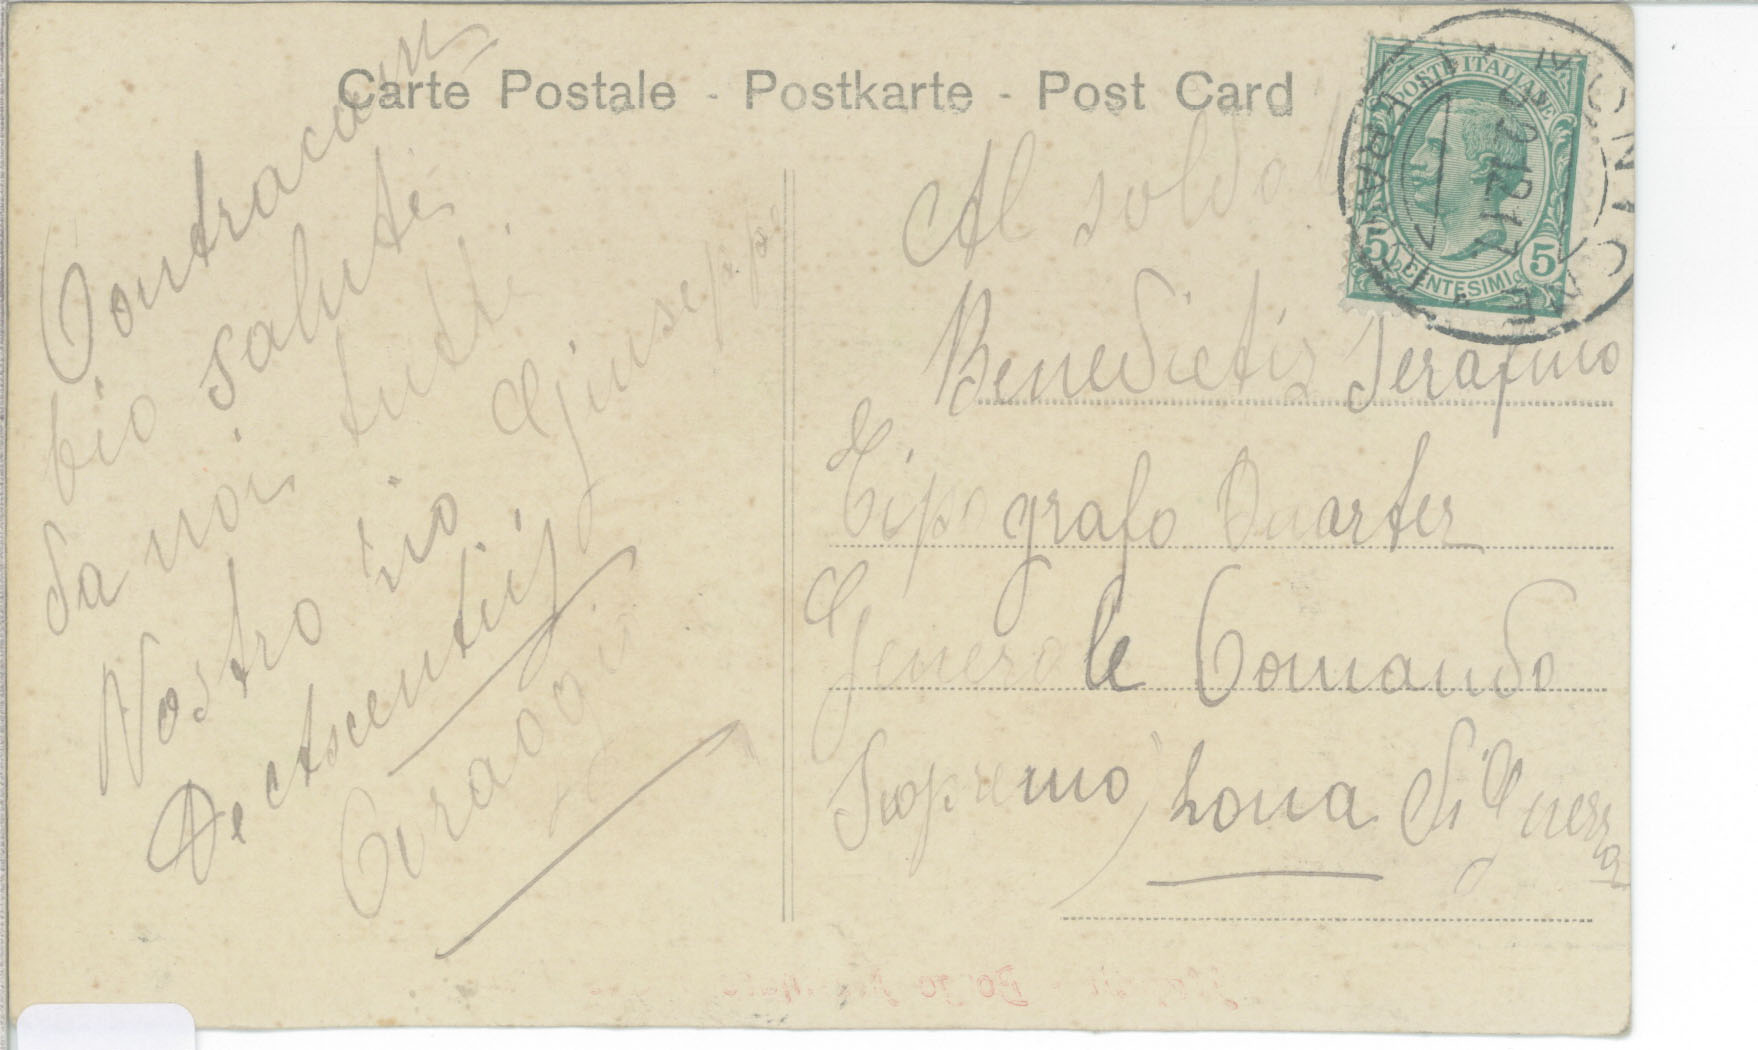 Carte Postale - Postkarte - Post Card
Contracam
bio saluti
da noi tutti
Nostro zio Giuseppe
De Ascentiis
POSTE ITALIANE
5 CENTESIMI 5
Al soldato
Benedictis Serafino
Tipografo Quarter
Generale Comando
Supremo, Zona di Guerra